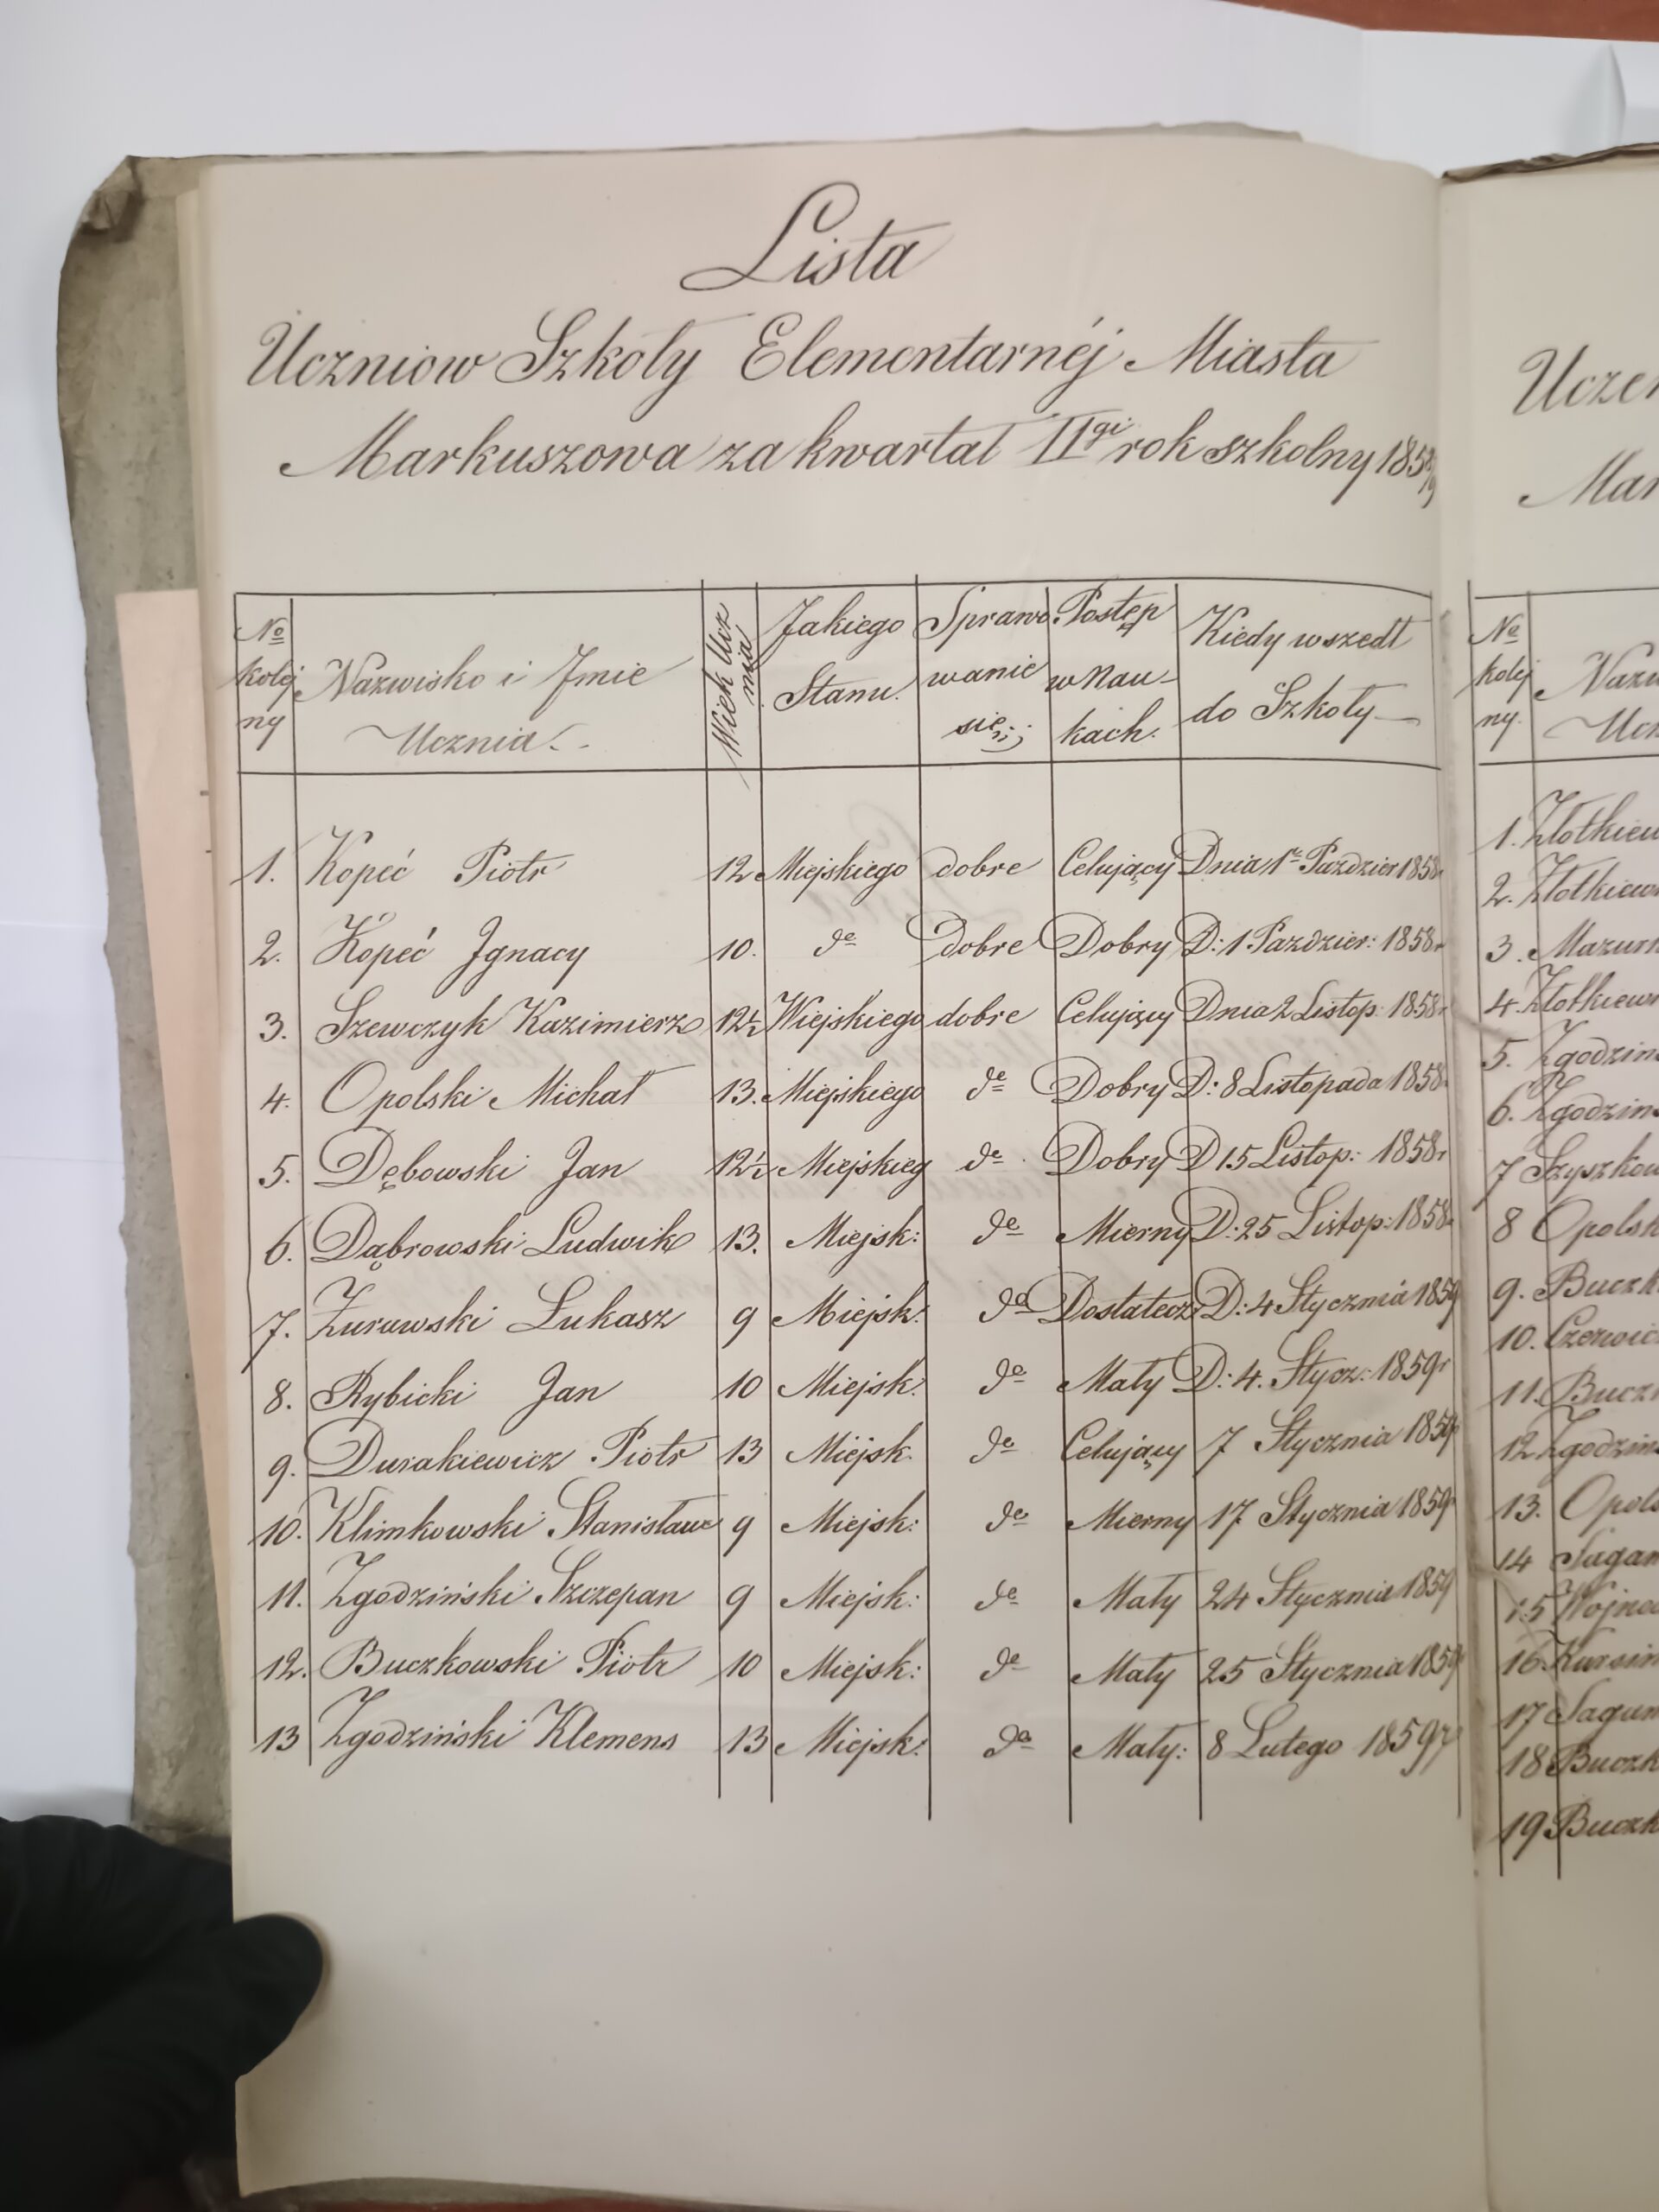 Lista
Uczniow Szkoły Elementarnéj Miasta
Markuszowa za kwartał IIgi rok szkolny 1858/9
No kolejny | Nazwisko i Jmie Ucznia | Wiek Ucznia | Jakiego Stanu. | Sprawowanie się | Postęp w Naukach. | Kiedy wszedł do Szkoły
1. Kopeć Piotr 12 Miejskiego dobre Celujący Dnia 1o Paździer 1858r
2. Kopeć Jgnacy 10. de dobre Dobry D: 1 Paździer: 1858r
3. Szewczyk Kazimierz 12½ Wiejskiego dobre Celujący Dnia 2 Listop: 1858r
4. Opolski Michał 13. Miejskiego de Dobry D: 8 Listopada 1858
5. Dębowski Jan 12½ Miejskieg de Dobry D 15 Listop: 1858r
6. Dąbrowski Ludwik 13. Miejsk: de Mierny D: 25 Listop: 1858
7. Żurawski Łukasz 9 Miejsk: do Dostatecz D: 4 Stycznia 1859
8. Rybicki Jan 10 Miejsk: de Mały D: 4. Stycz: 1859r
9. Durakiewicz Piotr 13 Miejsk. de Celujący 7 Stycznia 1859r
10. Klimkowski Stanisław 9 Miejsk: de Mierny 17 Stycznia 1859r
11. Zgodziński Szczepan 9 Miejsk: de Mały 24 Stycznia 1859
12. Buczkowski Piotr 10 Miejsk: de Mały 25 Stycznia 1859
13 Zgodziński Klemens 13 Miejsk: do Mały: 8 Lutego 1859r
Uczen
Mar
No kolejny. Nazw
Ucz
1. Złotkiew
2. Złotkiew
3. Mazur
4. Złotkiew
5. Zgodzin
6. Zgodzin
7 Szyszkow
8 Opolsk
9. Buczk
10. Czerwie
11. Bucz
12 Zgodzin
13. Opols
14 Sagan
15 Wojna
16.
17 Sagan
18 Buczk
19 Buczk